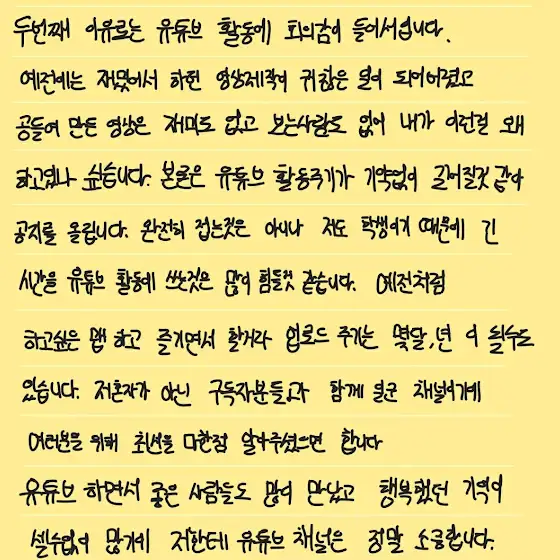 두번째 이유로는 유튜브 활동에 회의감이 들어서입니다.
예전에는 재밌어서 하던 영상제작이 귀찮은 일이 되어버렸고
공들여 만든 영상은 재미도 없고 보는사람도 없어 내가 이런걸 왜
하고있나 싶습니다. 본론은 유튜브 활동주기가 기약없이 길어질것 같아
공지를 올립니다. 완전히 접는것은 아니나 저도 학생이기 때문에 긴
시간을 유튜브 활동에 쓰는것은 많이 힘들것 같습니다. 예전처럼
하고싶은 맵 하고 즐기면서 할거라 업로드 주기는 몇달, 년 이 될수도
있습니다. 저혼자가 아닌 구독자분들과 함께 일군 채널이기에
여러분을 위해 최선을 다한점 알아주셨으면 합니다
유튜브 하면서 좋은 사람들도 많이 만났고 행복했던 기억이
셀수없이 많기에 저한테 유튜브 채널은 정말 소중합니다.